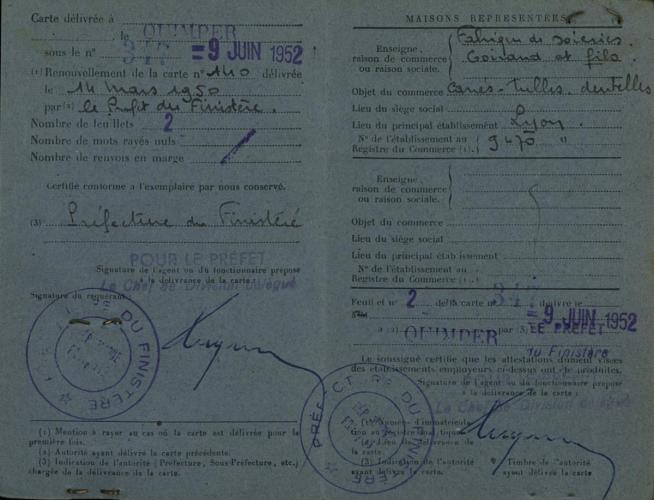 Carte délivrée à
QUIMPER
, le
sous le n° 347 = 9 JUIN 1952
(1) Renouvellement de la carte n° 140 délivrée
le 14 mars 1950
par (2) le Préfet du Finistère.
Nombre de feuillets 2
Nombre de mots rayés nuls
Nombre de renvois en marge
Certifié conforme a l'exemplaire par nous conservé.
(3) Préfecture du Finistère
POUR LE PRÉFET
Signature de l'agent ou du fonctionnaire préposé
à la délivrance de la carte :
Le Chef de Division délégué
Signature du requérant :
DU FINISTÈRE
(1) Mention à rayer au cas où la carte est délivrée pour la
première fois.
(2) Autorité ayant délivré la carte précédente.
(3) Indication de l'autorité (Préfecture, Sous-Préfecture, etc.)
chargée de la délivrance de la carte.
MAISONS REPRÉSENTÉES
Enseigne,
raison de commerce
ou raison sociale.
Fabrique de soieries.
et fils
Objet du commerce carrés - tulles. dentelles
Lieu du siège social
Lieu du principal établissement Lyon.
N° de l'établissement au
Registre du Commerce (1).
9470 "
Enseigne,
raison de commerce
ou raison sociale.
Objet du commerce
Lieu du siège social
Lieu du principal établissement
N° de l'établissement au
Registre du Commerce (1).
Feuillet n° 2 de la carte n° 347 délivrée le
= 9 JUIN 1952
à (2) QUIMPER par (3) LE PRÉFET
du Finistère
Le soussigné certifie que les attestations dûment visées
des établissements employeurs ci-dessus ont été produites.
POUR
Signature de l'agent ou du fonctionnaire préposé
à la délivrance de la carte :
Le Chef de Division délégué
PRÉFECTURE DU FINISTÈRE
(1) Numéro d'immatricula-
tion au registre
(2) Lieu de délivrance de
la carte.
(3) Indication de l'autorité
ayant délivré la carte
Timbre de l'autorité
ayant délivré la carte